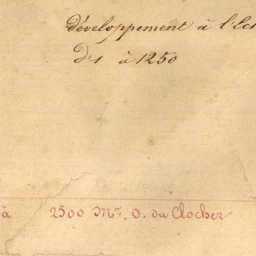 développement à l'Ech
D's à 1250
à 2500 Mrs. O. du Clocher